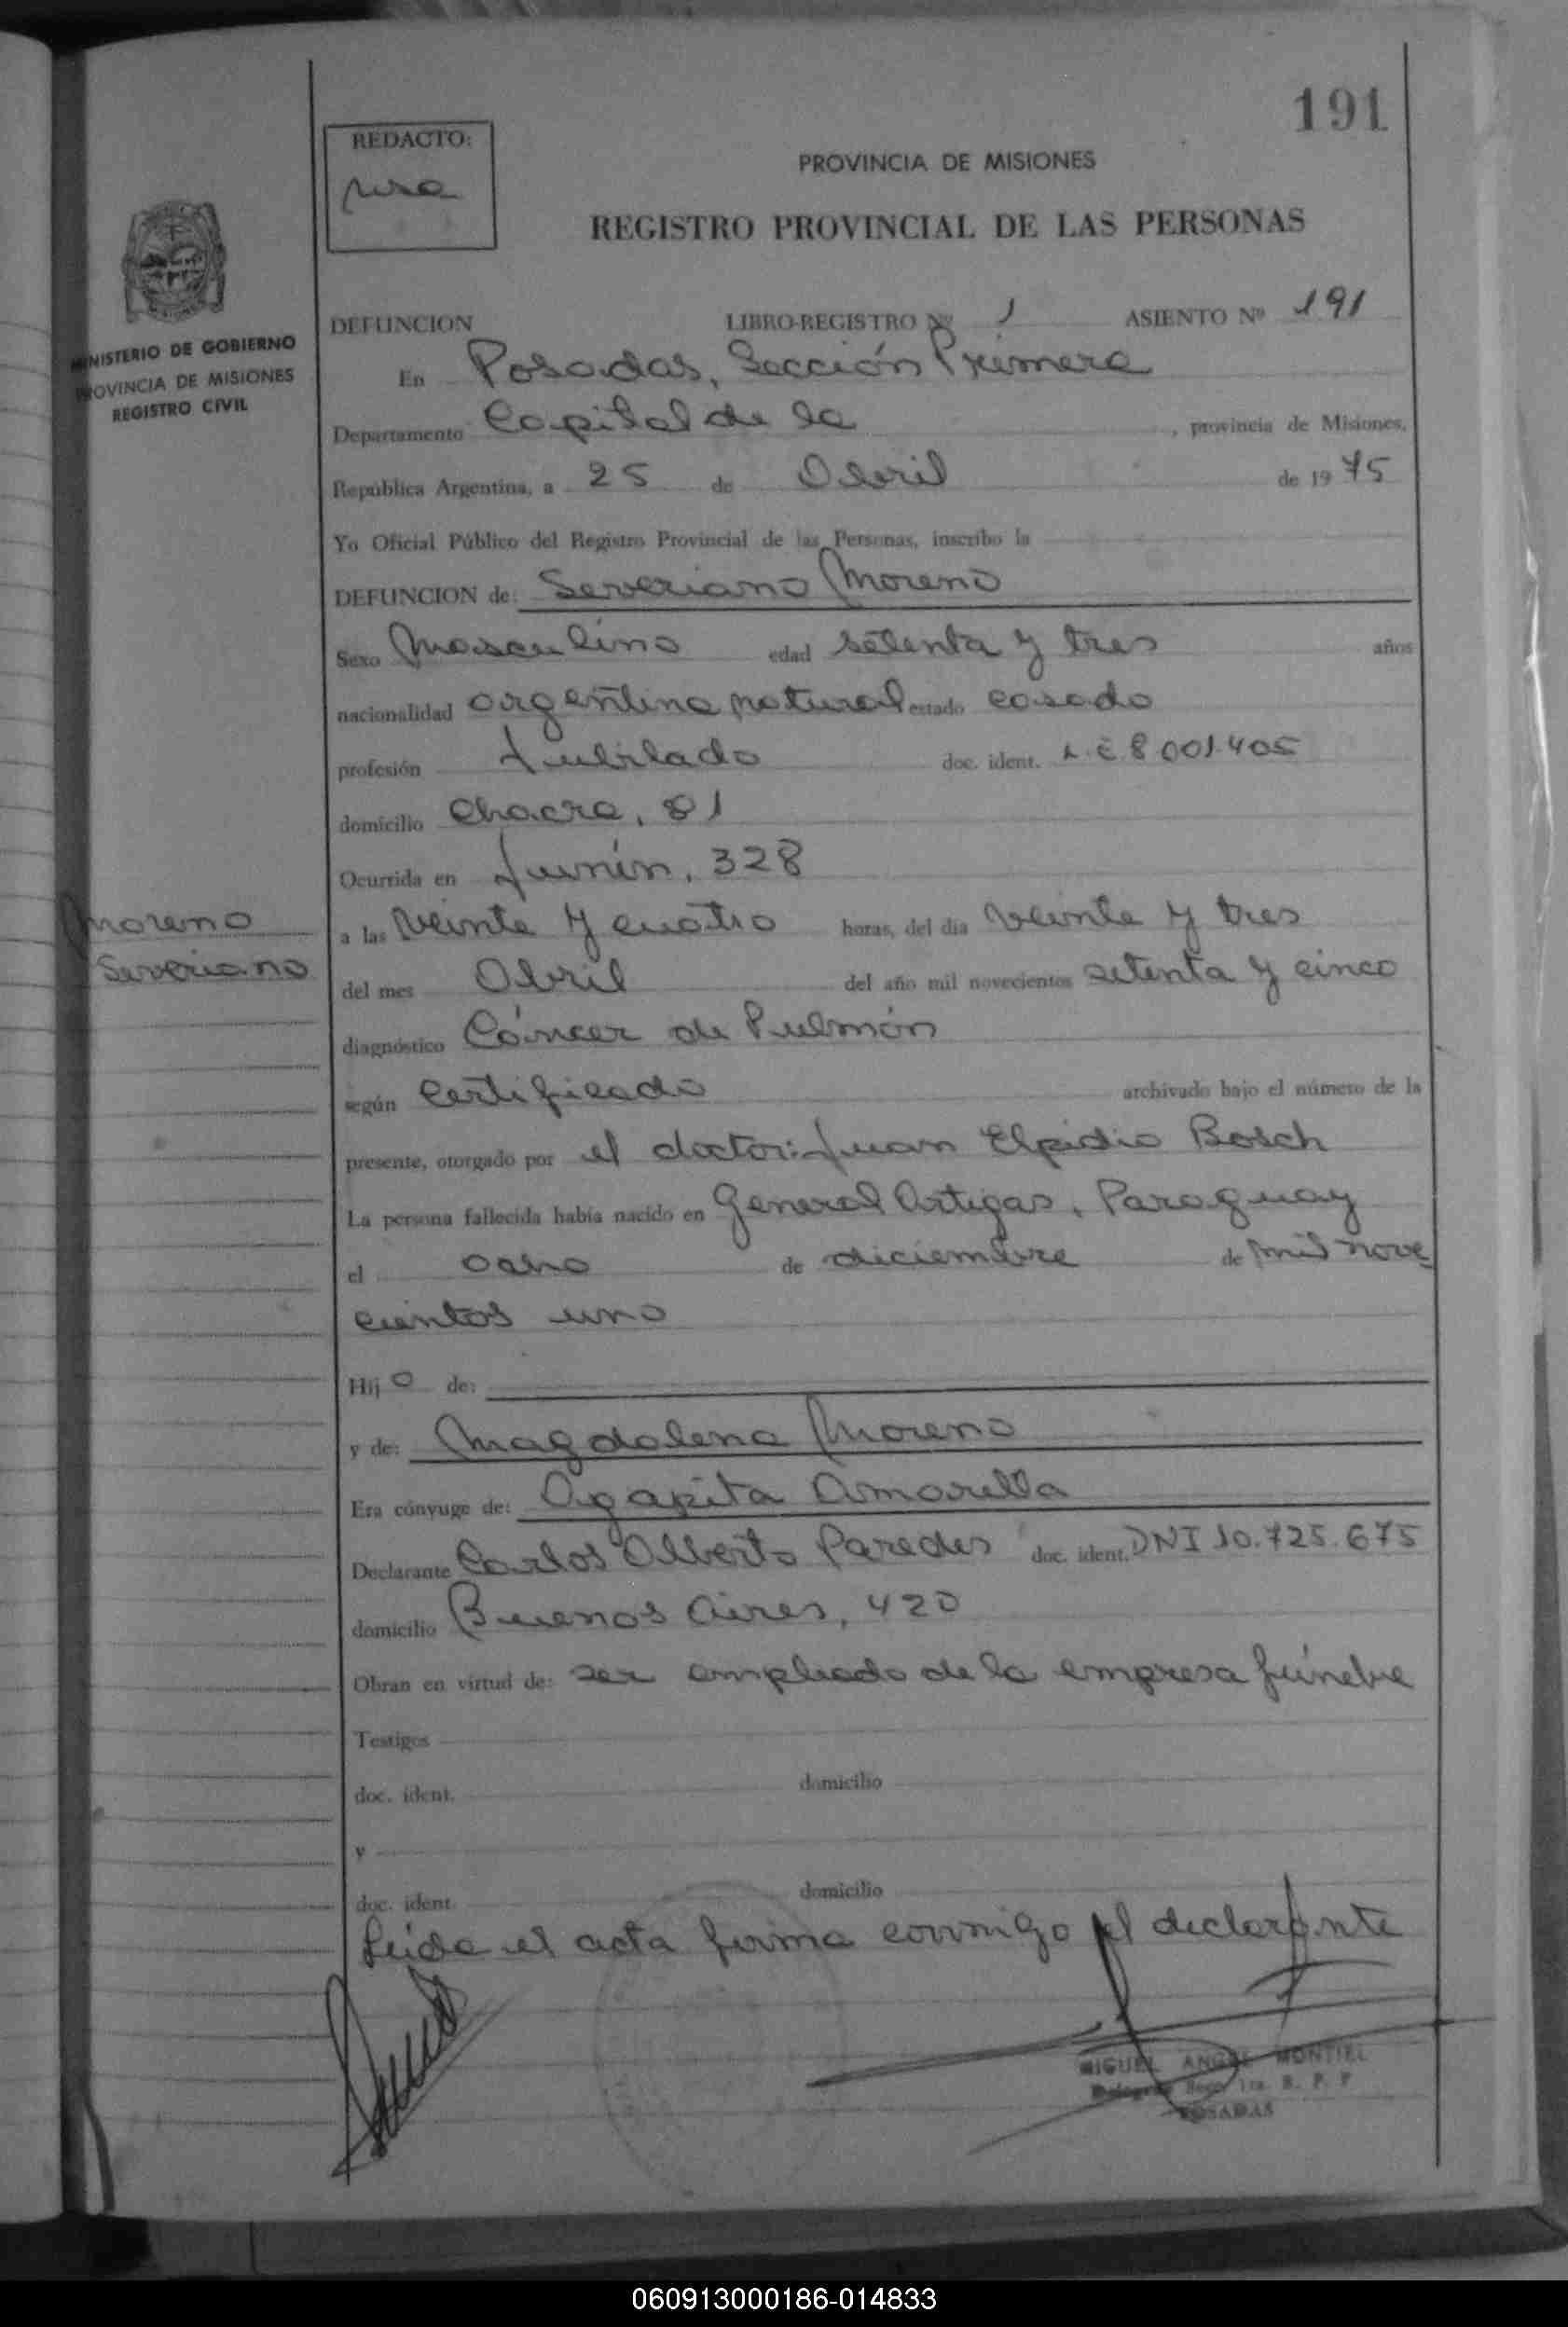 191
REDACTO:
PROVINCIA DE MISIONES
REGISTRO PROVINCIAL DE LAS PERSONAS
MINISTERIO DE GOBIERNO
PROVINCIA DE MISIONES
REGISTRO CIVIL
DEFUNCION LIBRO-REGISTRO Nº 1 ASIENTO Nº 191
En Posadas, Sección Primera
Departamento Capital de la , provincia de Misiones,
República Argentina, a 25 de Abril de 1975
Yo Oficial Público del Registro Provincial de las Personas, inscribo la
DEFUNCION de: Severiano Moreno
Sexo Masculino edad setenta y tres años
nacionalidad argentina natural estado casado
profesión Jubilado doc. ident. L E 8 001.405
domicilio Chacra, 81
Ocurrida en Junín, 328
Moreno
Severiano
a las veinte y cuatro horas, del día veinte y tres
del mes Abril del año mil novecientos setenta y cinco
diagnóstico Cáncer de Pulmón
según Certificado archivado bajo el número de la
presente, otorgado por el doctor: Juan Elpidio Bosch
La persona fallecida había nacido en General Artigas, Paraguay
el ocho de diciembre de mil nove
cientos uno
Hijo de:
y de: Magdalena Moreno
Era cónyuge de: Agapita Amarilla
Declarante Carlos Alberto Paredes doc. ident. DNI 10.725.675
domicilio Buenos Aires, 420
Obran en virtud de: ser empleado de la empresa fúnebre
Testigos
doc. ident. domicilio
y
doc. ident. domicilio
Leída el acta firma conmigo el declarante
MIGUEL ANGEL MONTIEL
Secc. 1ra. R. P. P
POSADAS
060913000186-014833